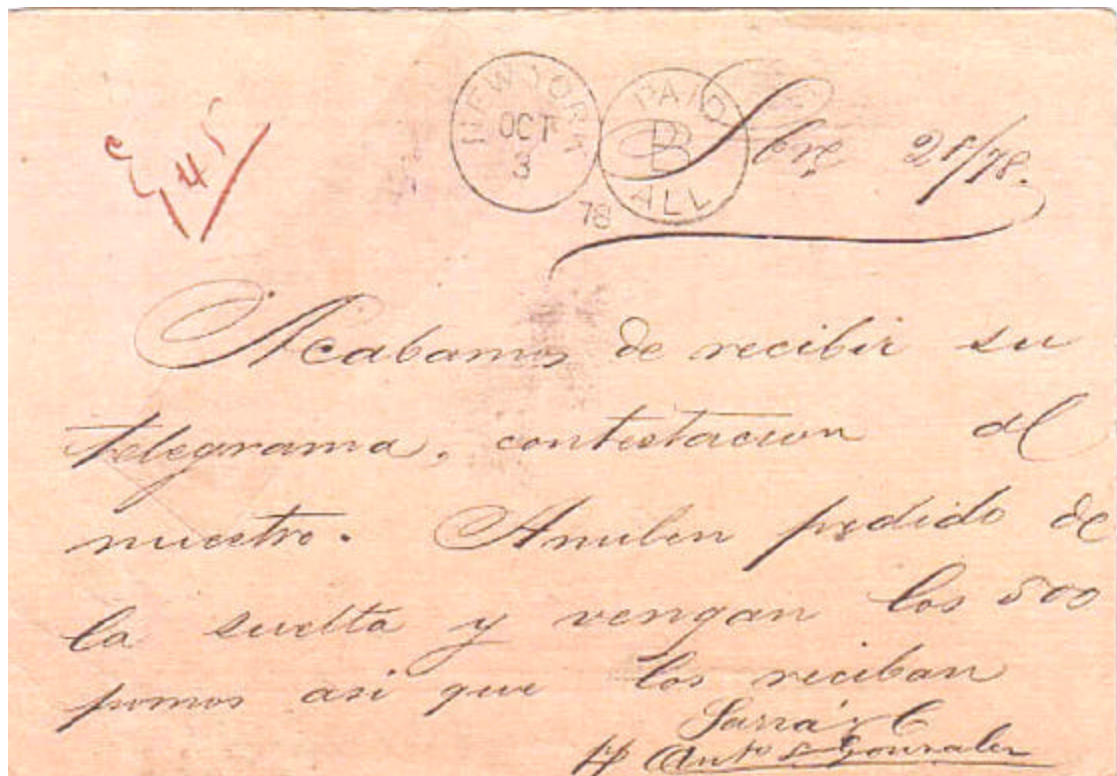 NEW YORK
OCT
3
78
PAID
B
ALL
Sbre 28/78.
Acabamos de recibir su
telegrama, contestacion al
nuestro. Anulen pedido de
la suelta y vengan los 500
pomos asi que los reciban
Sarrá y C
Anto Gonzalez